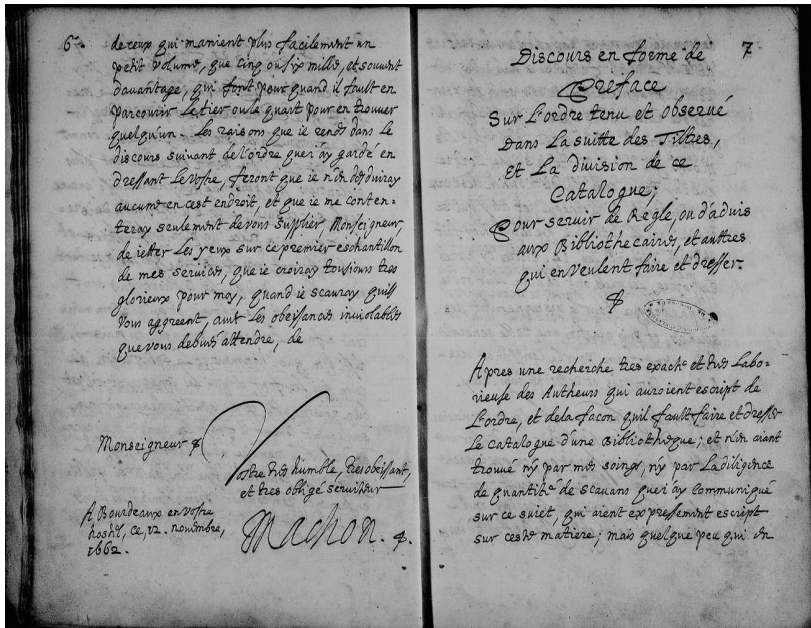 6.
de ceux qui manient plus facilement un
petit volume, que cinq ou six mille, et souvent
davantage, qui sont pour quand il fault en
parcourir le tier ou le quart pour en trouver
quelqu'un. Les raisons que ie rends dans le
discours suivant de l'ordre que i'ay gardé en
dressant le vostre, feront que ie n'en desduiray
aucune en cest endroit, et que ie me conten-
teray seulement de vous supplier Monseigneur,
de ietter les yeux sur ce premier eschantillon
de mes services, que ie croiray tousiours tres
glorieux pour moy, quand ie scauray quils
vous aggreent, avec les obeissances inviolables
que vous debvés attendre, de
Monseigneur
Vostre tres humble, tres obeissant,
et tres obligé serviteur
A Bourdeaux en vostre
hostel, ce, 12. novembre,
1662.
Machon.
7
Discours en forme de
Preface
Sur l'ordre tenu et observé
dans la suitte des Tiltres,
et la division de ce
Catalogue;
Pour servir de Regle, ou d'advis
aux Bibliothecaires, et aultres
qui en veulent faire et dresser.
Apres une recherche tres exacte et tres labo-
rieuse des Autheurs qui auroient escript de
l'ordre, et de la facon qu'il fault faire et dresser
le catalogue d'une Bibliotheque; et n'en aiant
trouvé n'y par mes soings, n'y par la diligence
de quantité de scavans que i'ay communiqué
sur ce suiet, qui aient expressement escript
sur ceste matiere; mais quelque peu qui en